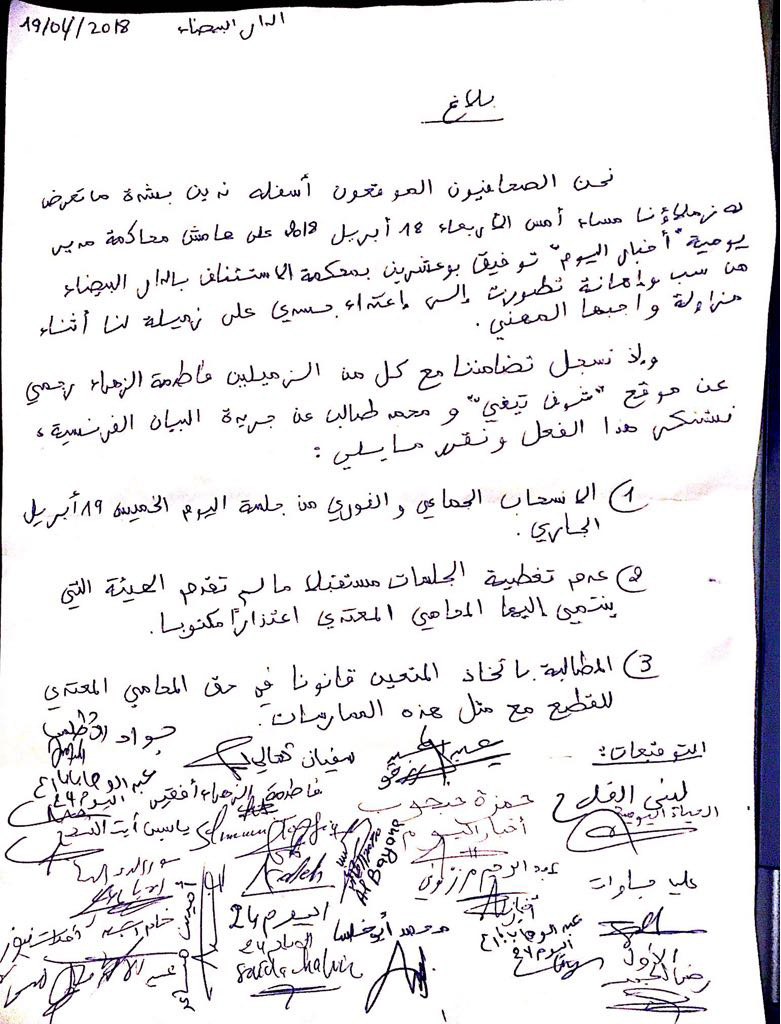 الدار البيضاء 19/04/2018
بلاغ
نحن الصحافيون الموقعون أسفله ندين بشدة ما تعرض
له زملاؤنا مساء أمس الأربعاء 18 أبريل 2018 على هامش محاكمة مدير
يومية "أخبار اليوم" توفيق بوعشرين بمحكمة الاستئناف بالدار البيضاء
من سب وإهانة تطورت إلى إعتداء جسدي على زميلة لنا أثناء
مزاولة واجبها المهني.
وإذ نسجل تضامننا مع كل من الزميلين فاطمة الزهراء رجمي
عن موقع "شوف تيفي" و محمد طالب عن جريدة البيان الفرنسية،
نستنكر هذا الفعل ونقرر مايلي :
1) الانسحاب الجماعي والفوري من جلسة اليوم الخميس 19 أبريل
الجاري.
2) عدم تغطية الجلسات مستقبلا ما لم تقدم الهيئة التي
ينتمي إليها المحامي المعتدي اعتذارًا مكتوبا.
3) المطالبة باتخاذ المتعين قانونا في حق المحامي المعتدي
للقطع مع مثل هذه الممارسات.
التوقيعات:
جواد
سفيان
عبد الوهاب بارع
اليوم 24
فاطمة الزهراء
حمزة حبجوب
أخبار اليوم
لبنى الفلاح
الحياة اليومية
ياسين أيت
Al Bayane
عبد الرحيم مرزوقي
عليا
اليوم 24
محمد أبو
أخبار
عبد الوهاب بارع
اليوم 24
رضا
الأولى